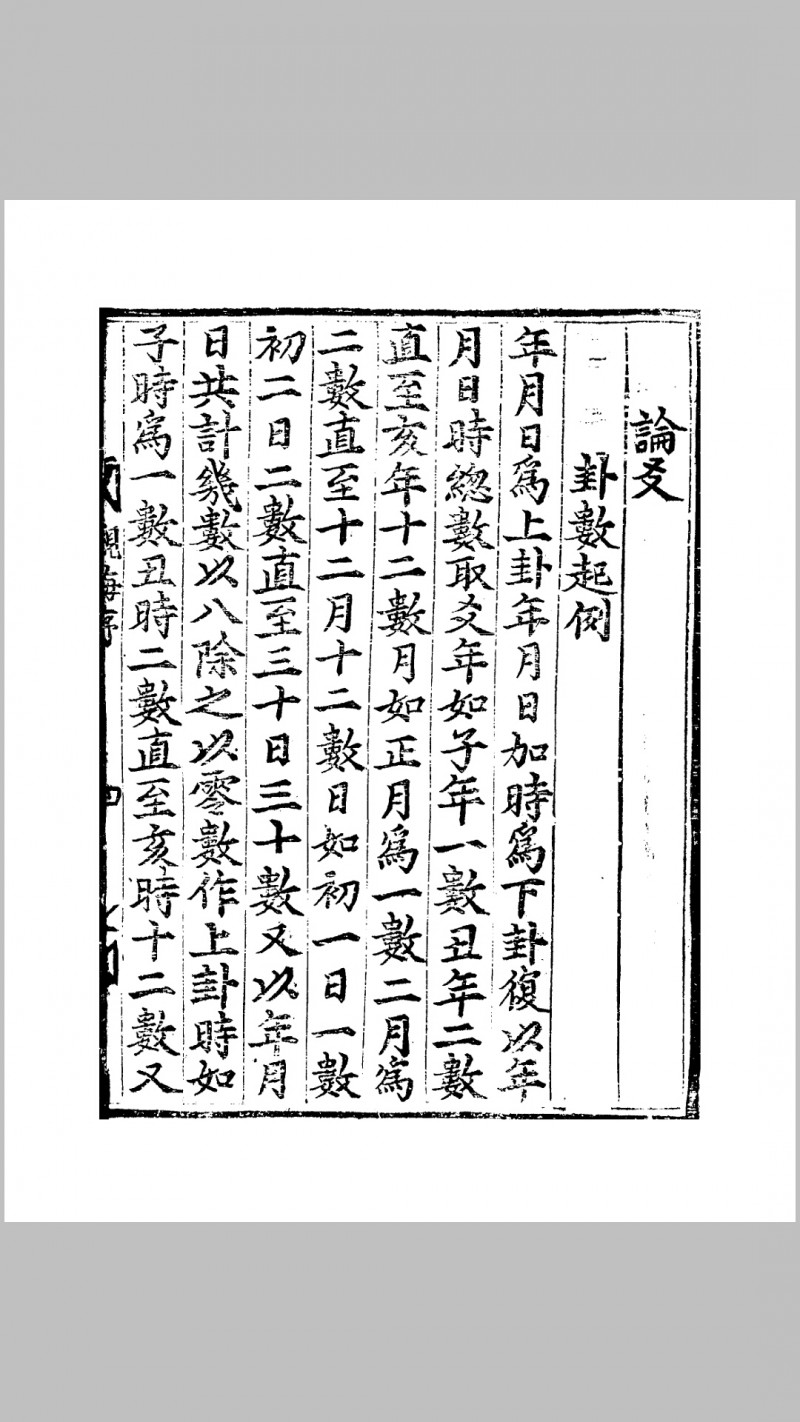 論爻
卦數起例
年月日爲上卦年月日加時爲下卦復以年
月日時總數取爻年如子年一數丑年二數
直至亥年十二數月如正月爲一數二月爲
二數直至十二月十二數日如初一日一數
初二日二數直至三十日三十數又以年月
日共計幾數以八除之以零數作上卦時如
子時爲一數丑時二數直至亥時十二數又
觀梅序